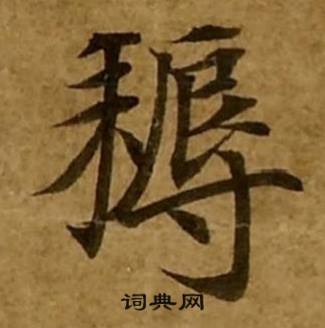 耨
词典网